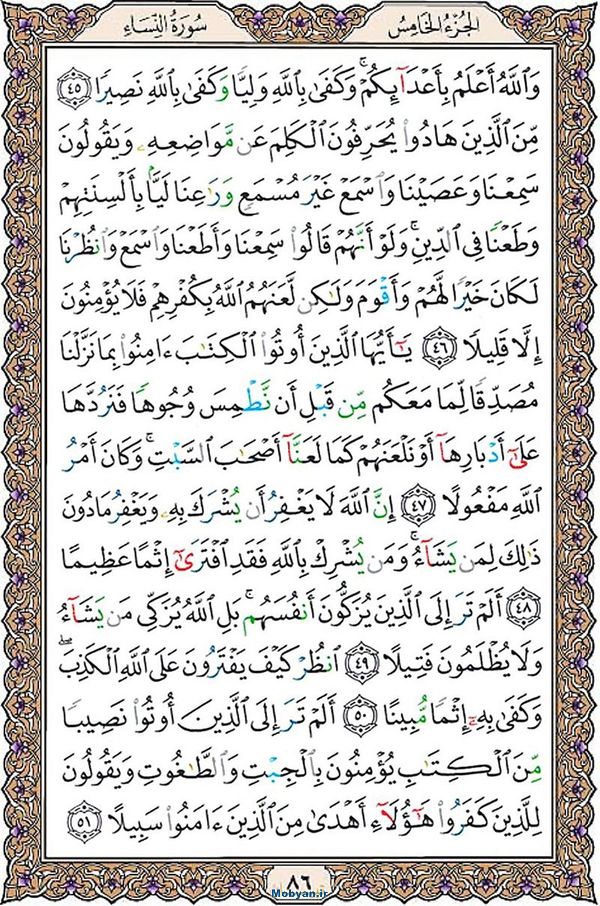 الجُزْءُ الخَامِسُ
سُورَةُ النِّسَاءِ
وَٱللَّهُ أَعۡلَمُ بِأَعۡدَآئِكُمۡۚ وَكَفَىٰ بِٱللَّهِ وَلِيّٗا وَكَفَىٰ بِٱللَّهِ نَصِيرٗا ٤٥
مِّنَ ٱلَّذِينَ هَادُواْ يُحَرِّفُونَ ٱلۡكَلِمَ عَن مَّوَاضِعِهِۦ وَيَقُولُونَ
سَمِعۡنَا وَعَصَيۡنَا وَٱسۡمَعۡ غَيۡرَ مُسۡمَعٖ وَرَٰعِنَا لَيَّۢا بِأَلۡسِنَتِهِمۡ
وَطَعۡنٗا فِي ٱلدِّينِۚ وَلَوۡ أَنَّهُمۡ قَالُواْ سَمِعۡنَا وَأَطَعۡنَا وَٱسۡمَعۡ وَٱنظُرۡنَا
لَكَانَ خَيۡرٗا لَّهُمۡ وَأَقۡوَمَ وَلَٰكِن لَّعَنَهُمُ ٱللَّهُ بِكُفۡرِهِمۡ فَلَا يُؤۡمِنُونَ
إِلَّا قَلِيلٗا ٤٦ يَٰٓأَيُّهَا ٱلَّذِينَ أُوتُواْ ٱلۡكِتَٰبَ ءَامِنُواْ بِمَا نَزَّلۡنَا
مُصَدِّقٗا لِّمَا مَعَكُم مِّن قَبۡلِ أَن نَّطۡمِسَ وُجُوهٗا فَنَرُدَّهَا
عَلَىٰٓ أَدۡبَارِهَآ أَوۡ نَلۡعَنَهُمۡ كَمَا لَعَنَّآ أَصۡحَٰبَ ٱلسَّبۡتِۚ وَكَانَ أَمۡرُ
ٱللَّهِ مَفۡعُولًا ٤٧ إِنَّ ٱللَّهَ لَا يَغۡفِرُ أَن يُشۡرَكَ بِهِۦ وَيَغۡفِرُ مَا دُونَ
ذَٰلِكَ لِمَن يَشَآءُۚ وَمَن يُشۡرِكۡ بِٱللَّهِ فَقَدِ ٱفۡتَرَىٰٓ إِثۡمًا عَظِيمًا
٤٨ أَلَمۡ تَرَ إِلَى ٱلَّذِينَ يُزَكُّونَ أَنفُسَهُمۚ بَلِ ٱللَّهُ يُزَكِّي مَن يَشَآءُ
وَلَا يُظۡلَمُونَ فَتِيلًا ٤٩ ٱنظُرۡ كَيۡفَ يَفۡتَرُونَ عَلَى ٱللَّهِ ٱلۡكَذِبَۖ
وَكَفَىٰ بِهِۦٓ إِثۡمٗا مُّبِينًا ٥٠ أَلَمۡ تَرَ إِلَى ٱلَّذِينَ أُوتُواْ نَصِيبٗا
مِّنَ ٱلۡكِتَٰبِ يُؤۡمِنُونَ بِٱلۡجِبۡتِ وَٱلطَّٰغُوتِ وَيَقُولُونَ
لِلَّذِينَ كَفَرُواْ هَٰٓؤُلَآءِ أَهۡدَىٰ مِنَ ٱلَّذِينَ ءَامَنُواْ سَبِيلًا ٥١
٨٦
Mobyan.ir